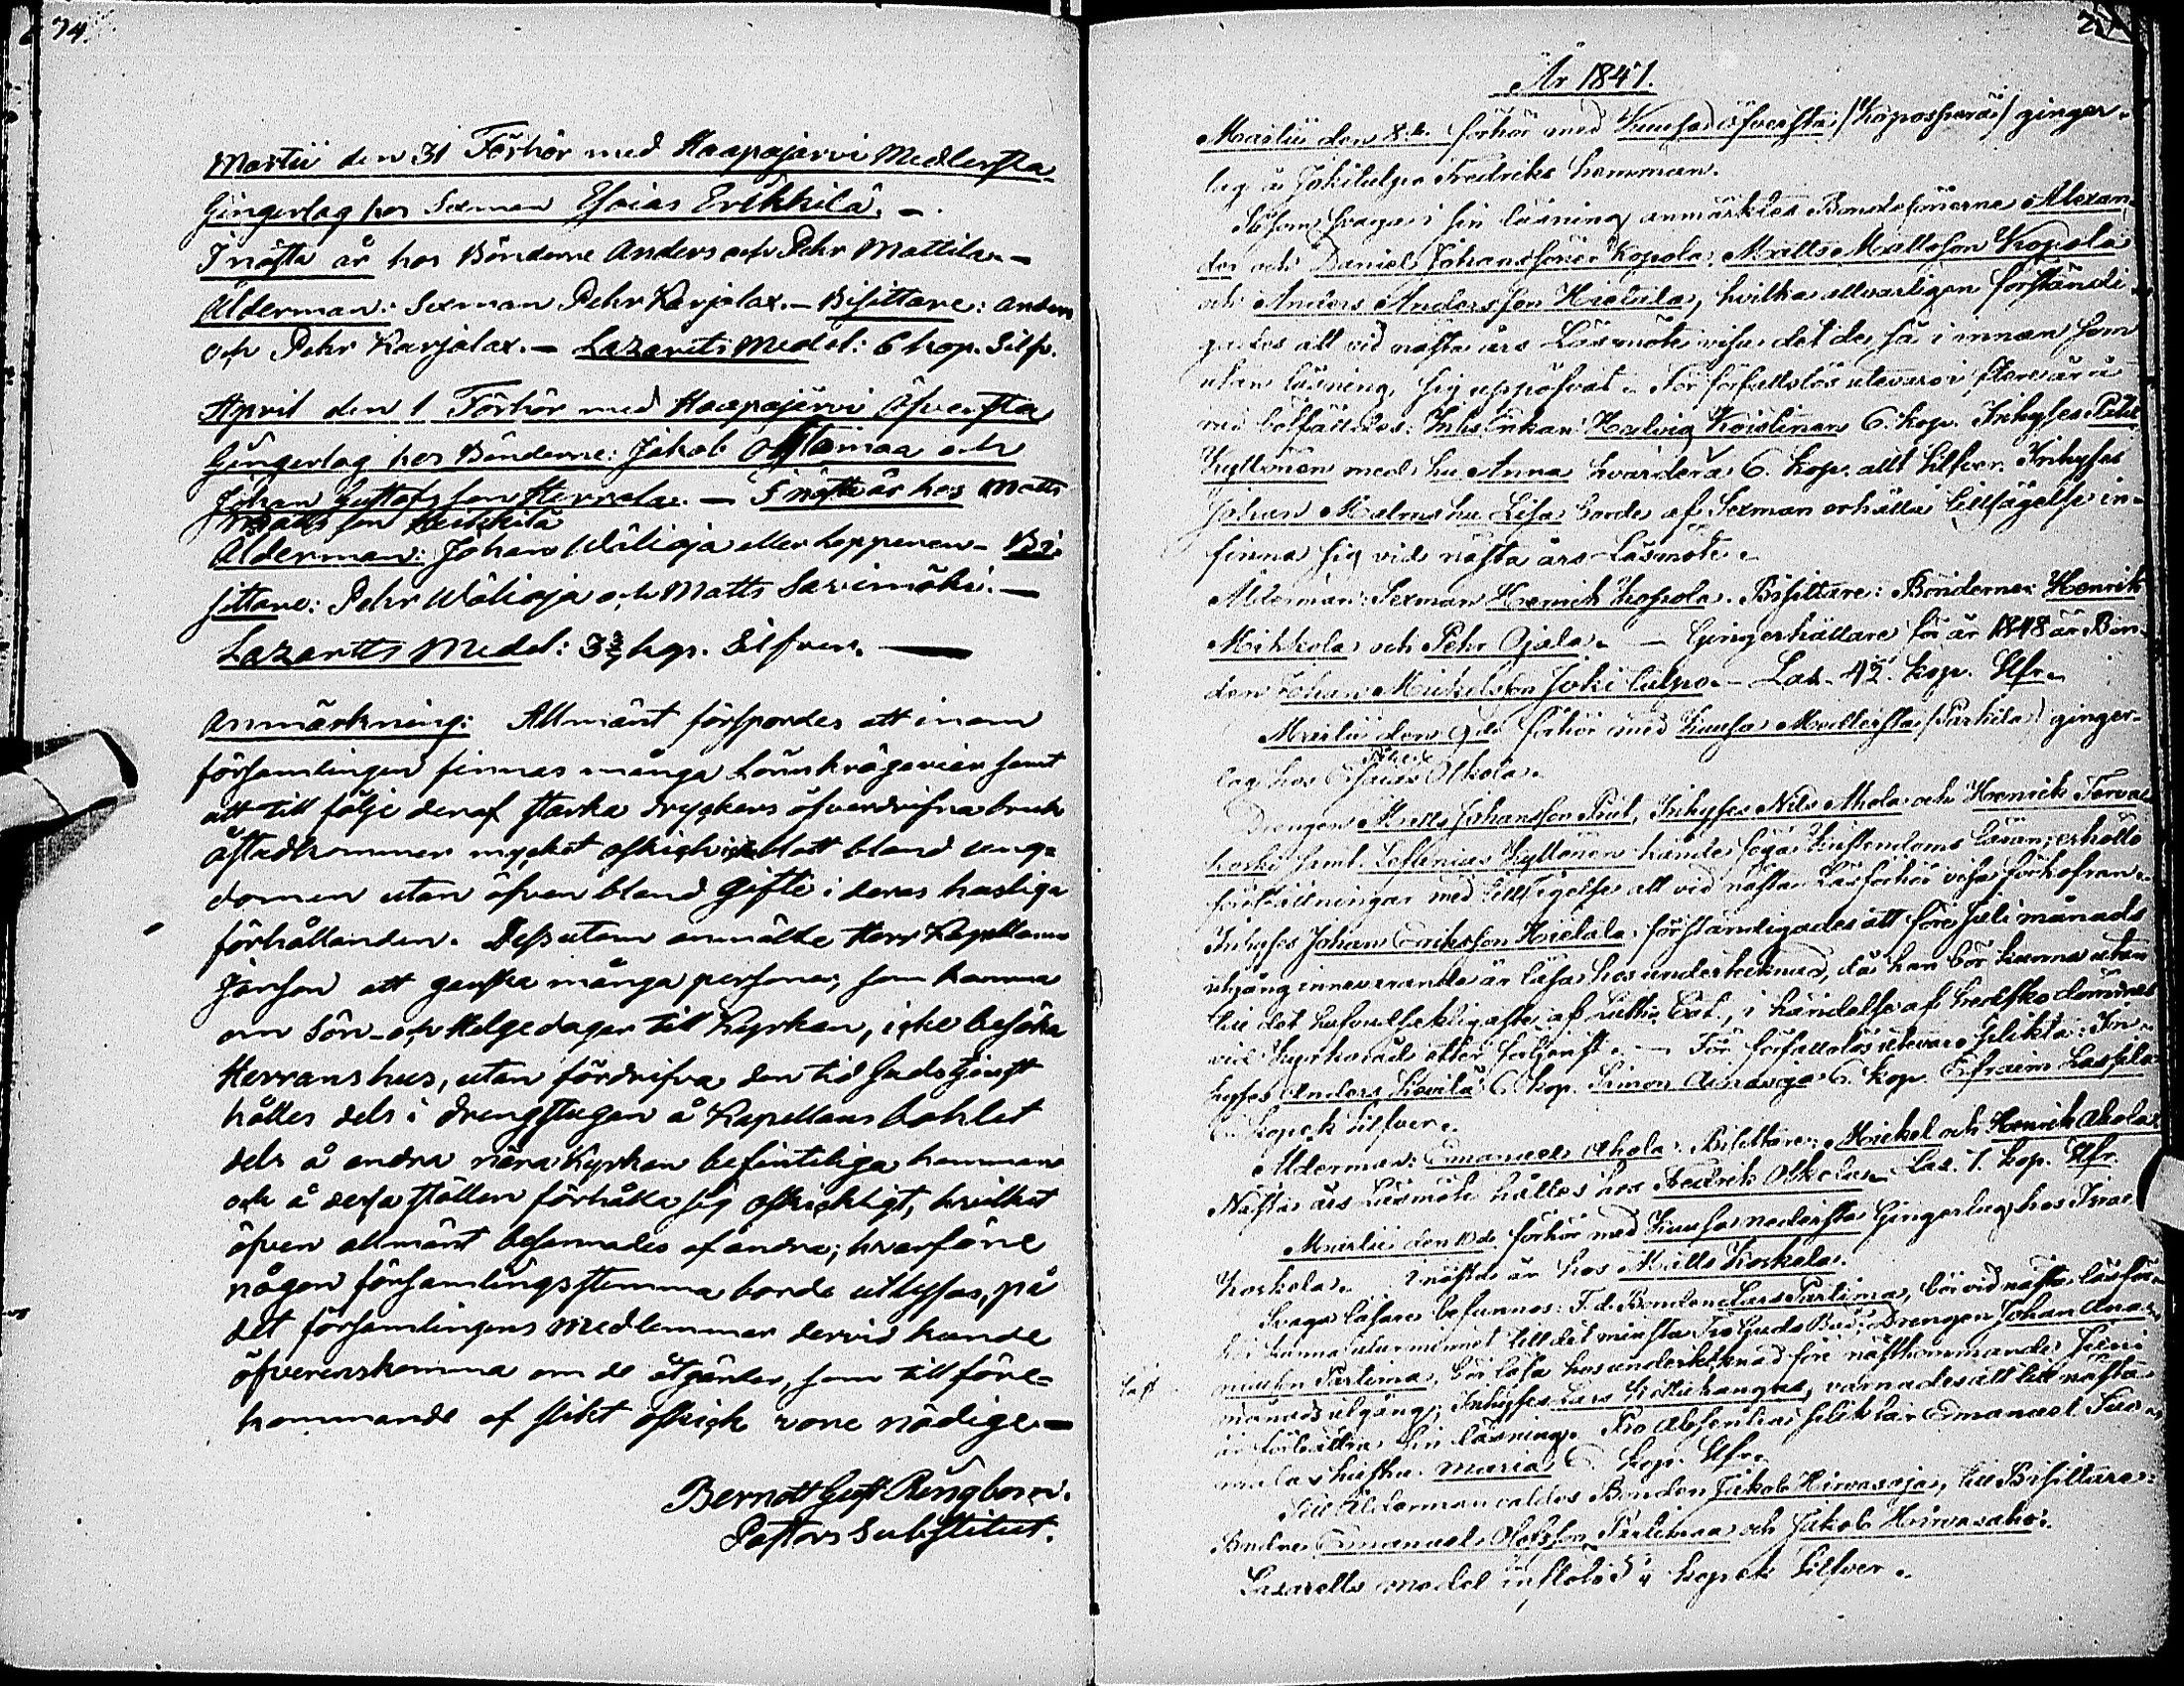 74.
Martii den 31 Förhör med Haapajärvi Medlersta
Gingerlag hos Sexman Esaias Erikkilä. –
I nästa år hos Bönderne Anders och Pehr Mattila. –
Ålderman: Sexman Pehr Karjalax. – Bisittare: Anders
och Pehr Karjalax. – Lazaretts Medel: 6 kop. Silfv.
April den 1 Förhör med Haapajärvi Öfversta
Gingerlag hos Bönderne: Jakob och
Johan Gustafsson Herrala. – I nästa år hos Matts
Mattsson
Ålderman: Johan Wäliaja eller – Bi-
sittare: Pehr Wäliaja och Matts Savimäki. –
Lazaretts Medel: kop. Silfver. –
Anmärkning: Allmänt förspordes att inom
församlingen finnas många Lönnkrögerier samt
att till följe deraf starka dryckers öfverdrifna bruk
åstadkommer mycket oskick icke blott bland ung-
domen utan äfven bland Gifte i deras husliga
förhållanden. Dessutom anmälte Herr Kapellanen
att ganska många personer, som komma
om Sön- och Helgedagar till Kyrkan, icke besöka
Herrans hus, utan fördrifva den tid Gudstjenst
hålles dels i drengstugan å Kapellans Bohlet
dels å andra nära Kyrkan befinteliga hemman
och å dessa ställen förhålla sig oskickligt, hvilket
äfven allmänt besannades af andra; hvarföre
någon församlingsstemma borde utlysas, på
det församlingens Medlemmar dervid kunde
öfverenskomma om de åtgärder, som till före-
kommande af slikt oskick vore nödige. –
Berndt Gust Ringbom.
Pastors Substitut.
År 1847.
Martii den 8de förhör med Kuusa öfversta / / ginger-
lag å Jokitulpo Fredriks hemman.
Såsom svaga i sin läsning anmärktes Bondesönerne Alexan-
der och Daniel Johanssöner Kopola, Matts Mattsson Kopola
och Anders Andersson Hietala, hvilka allvarligen förständi-
gades att vid nästa års Läsmöte visa det de så i innan som
utan läsning, sig uppöfvat. För förfallolös utevaro i flere år å
rad bötfälldes: Enkan Hedvig Koistinen 6. kop. Inhyses
Kyllönen med hu Anna hvardera 6. kop. allt Silfver. Inhyses
Johan Malms hu Lisa borde af Sexman erhålla tillsägelse in-
finna sig vid nästa års Läsmöte.
Ålderman: Sexman Henrik Kopola. Bisittare: Bönderne: Henrik
Mikkola och Pehr Ojala. – Gingerhållare för år 1848 är Bon-
den Johan Michelsson Jokitulpo. – Laz. 42. kop. Slfr.
Martii den 9de förhör med Kuusa Medlersta /Parkila/ ginger-
lag hos Esaias Olkola.
Drengen Matts Johansson, Inhyses Nils Ahola och Henrik Terva-
koski samt Zefanias Kyllönen kände föga Kristendoms Läran; erhöllo
föreställningar med tillsägelse att vid nästa Läsförhör visa förkofran.
Inhyses Johan Eriksson Hietala förständigades att före Juli månads
utgång innevarande år läsa hos undertecknad, då han bör kunna utan
till det hufvudsakligaste af Luth. Cat., i händelse af
vid Kyrkoråd efter Gudstjenst. – För förfallolös utevaro plikta: In-
hyses Anders 6 kop. Simon Ainasoja 6. kop. Efraim Lassila
6. kopek silfver.
Ålderman: Emanuel Ahola. Bisittare: Michel och Henrik Ahola.
Nästa års Läsmöte hålles hos Fredrik Olkola. – Laz. 7. kop. Slfr.
Martii den 10de förhör med Kuusa nedersta Gingerlag hos Isac
Koskela. I nästa år hos Matts Koskela.
Svaga läsare befunnos: F.d. Bonden Lars Parlima, bör vid nästa läsför-
hör kunna utur minnet till det minsta Tio Guds Bud; Drengen Johan
Parlima, bör läsa hos undertecknad före nästkommande Juni
månads utgång; Inhyses Lars, varnades att till nästa
år förbättra sin läsning. Pro Absentia pliktar Emanuel
hustru Maria 6. kop. Slfr.
Till Ålderman valdes Bonden Jakob Hirvasoja, till Bisittare:
Bönder Emanuel Olofsson Parlimaa och Jakob Hirvasaho.
Lazaretts medel inflöto 4 kopek Silfver.